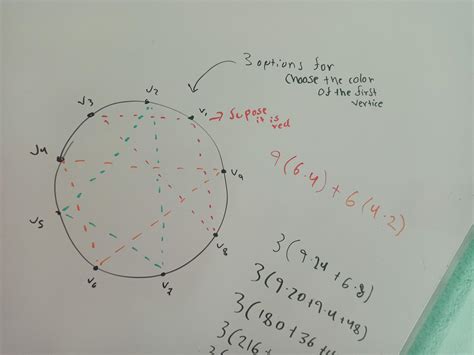 3 options for
choose the color
of the first
vertice
v2
v3
v1
Supose
it is
red
v4
v9
v5
v8
v6
v7
9(6.4) + 6(4.2)
3(9.24 + 6.8)
3(9.20+9.4+48)
3(180+36+
3(216+